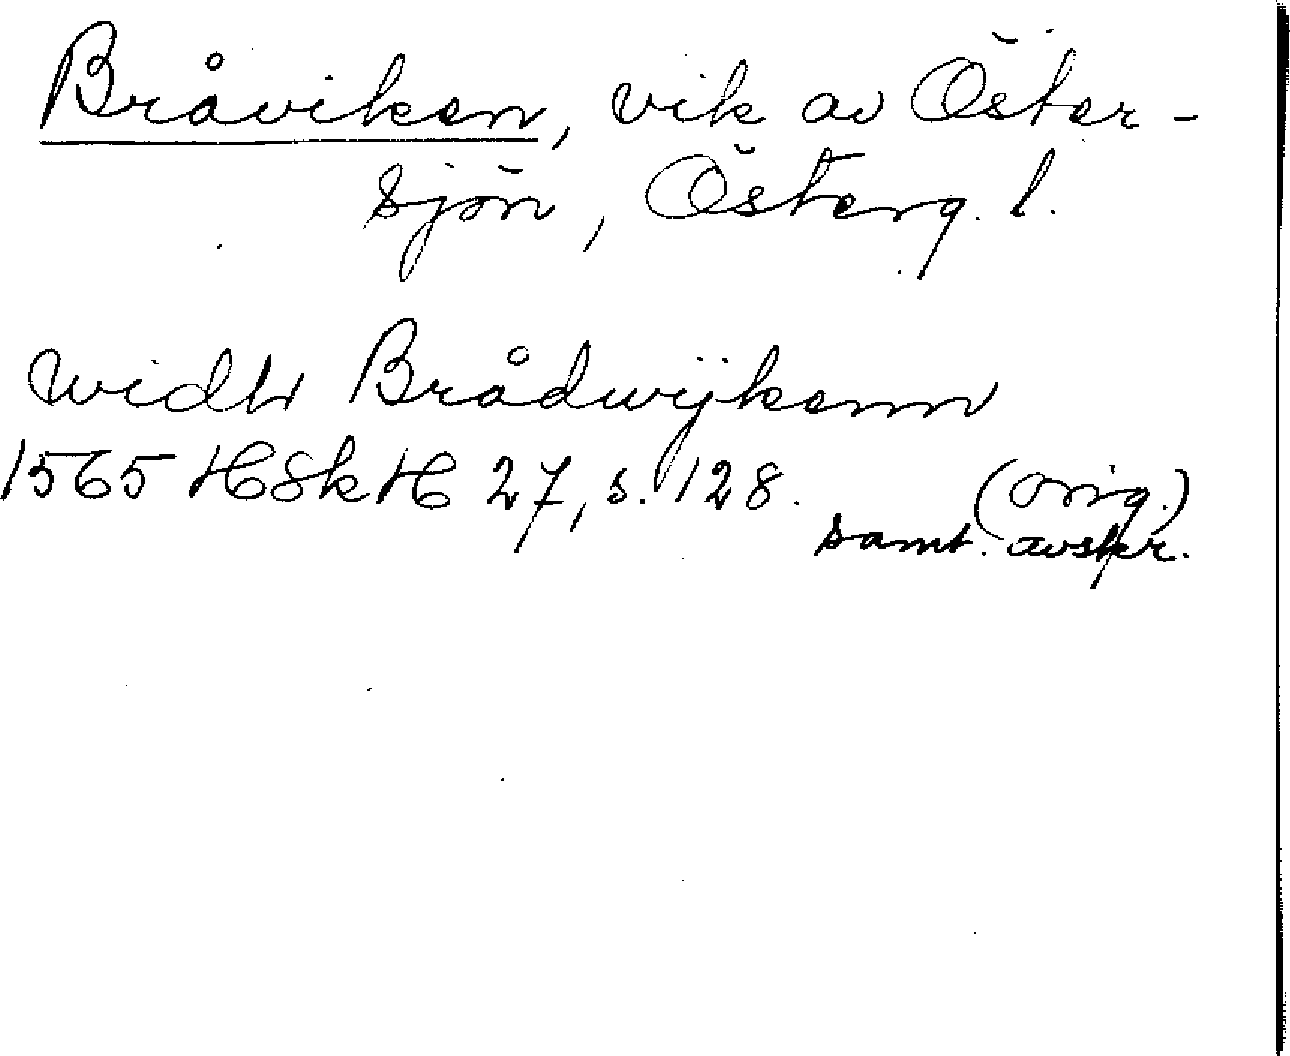 Bråviken, vik av Öster-
sjön, Österg. l.
widh Brådwijkenn
1565 HSkH 27, s. 128. (orig.)
samt. avskr.